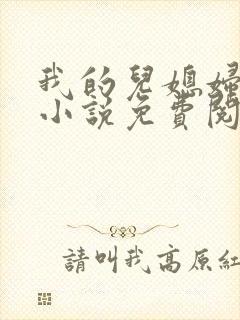 我的兒媳婦
小說免費閱
請叫我高原紅